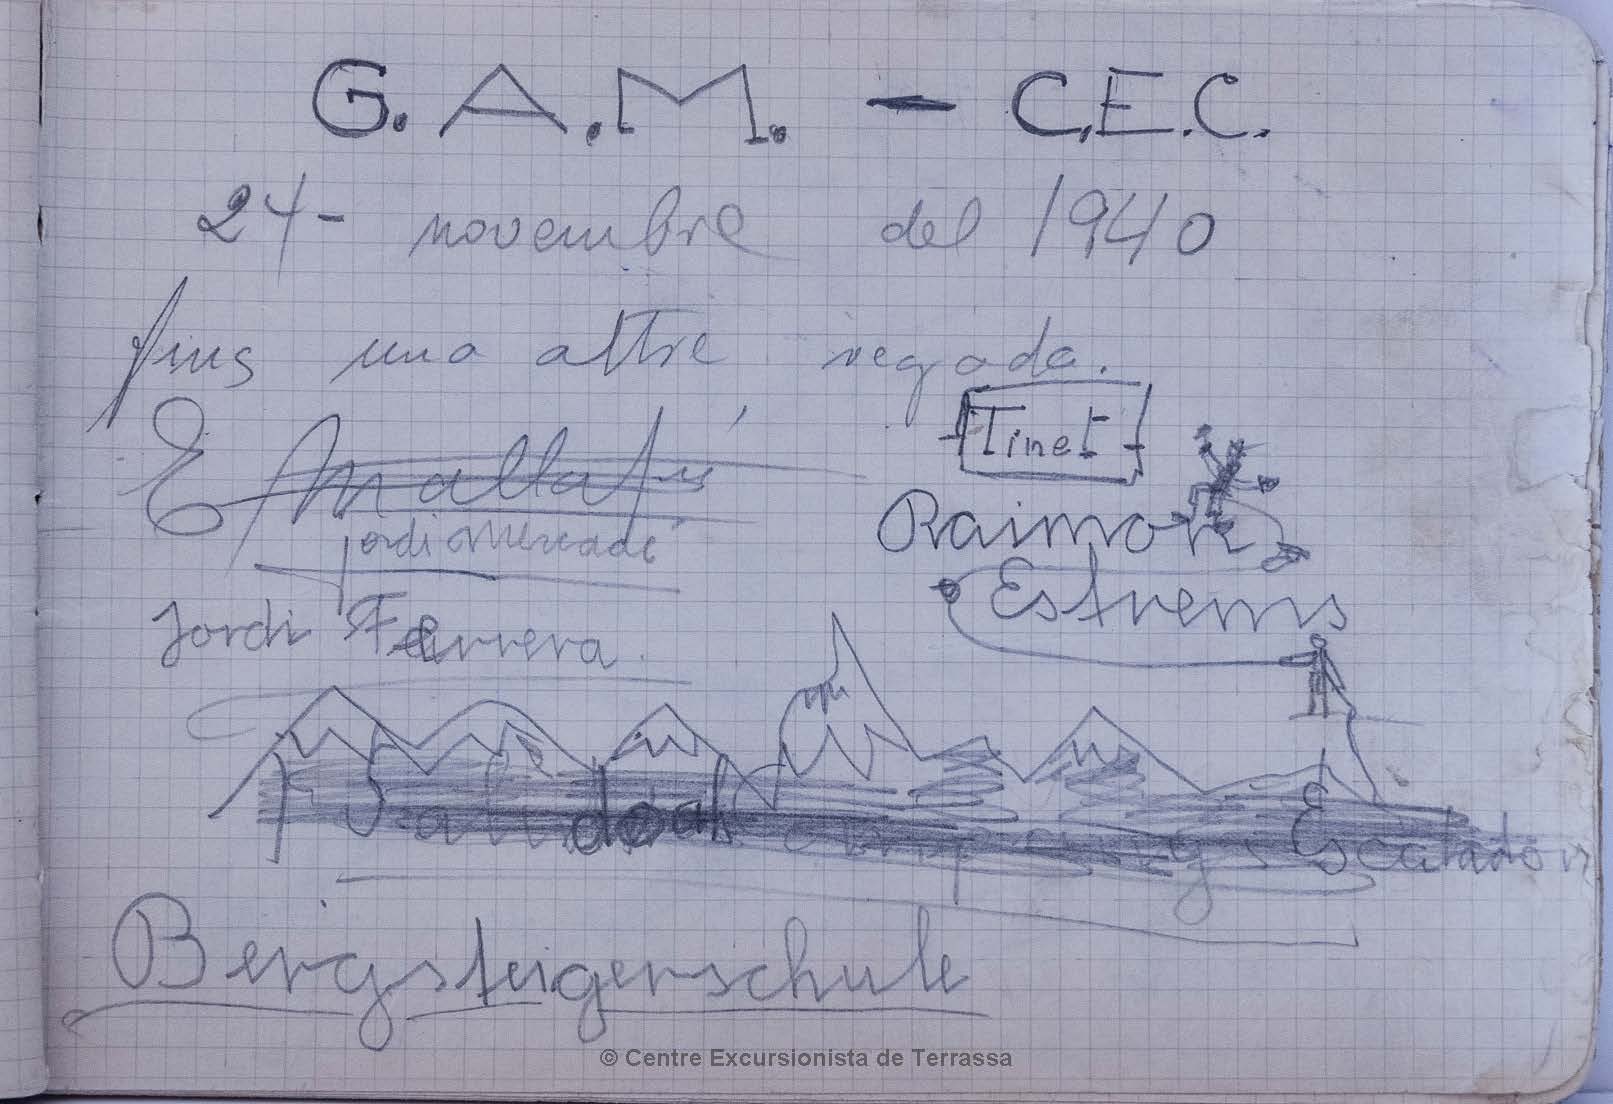 G.A.M. - C.E.C.
24- novembre del 1940
fins una altre vegada.
E Mallafré
Tinet
jordi Mercadé
Raimon
Estrems
Jordi Ferrera.
Escalador
Bergsteigerschule
© Centre Excursionista de Terrassa